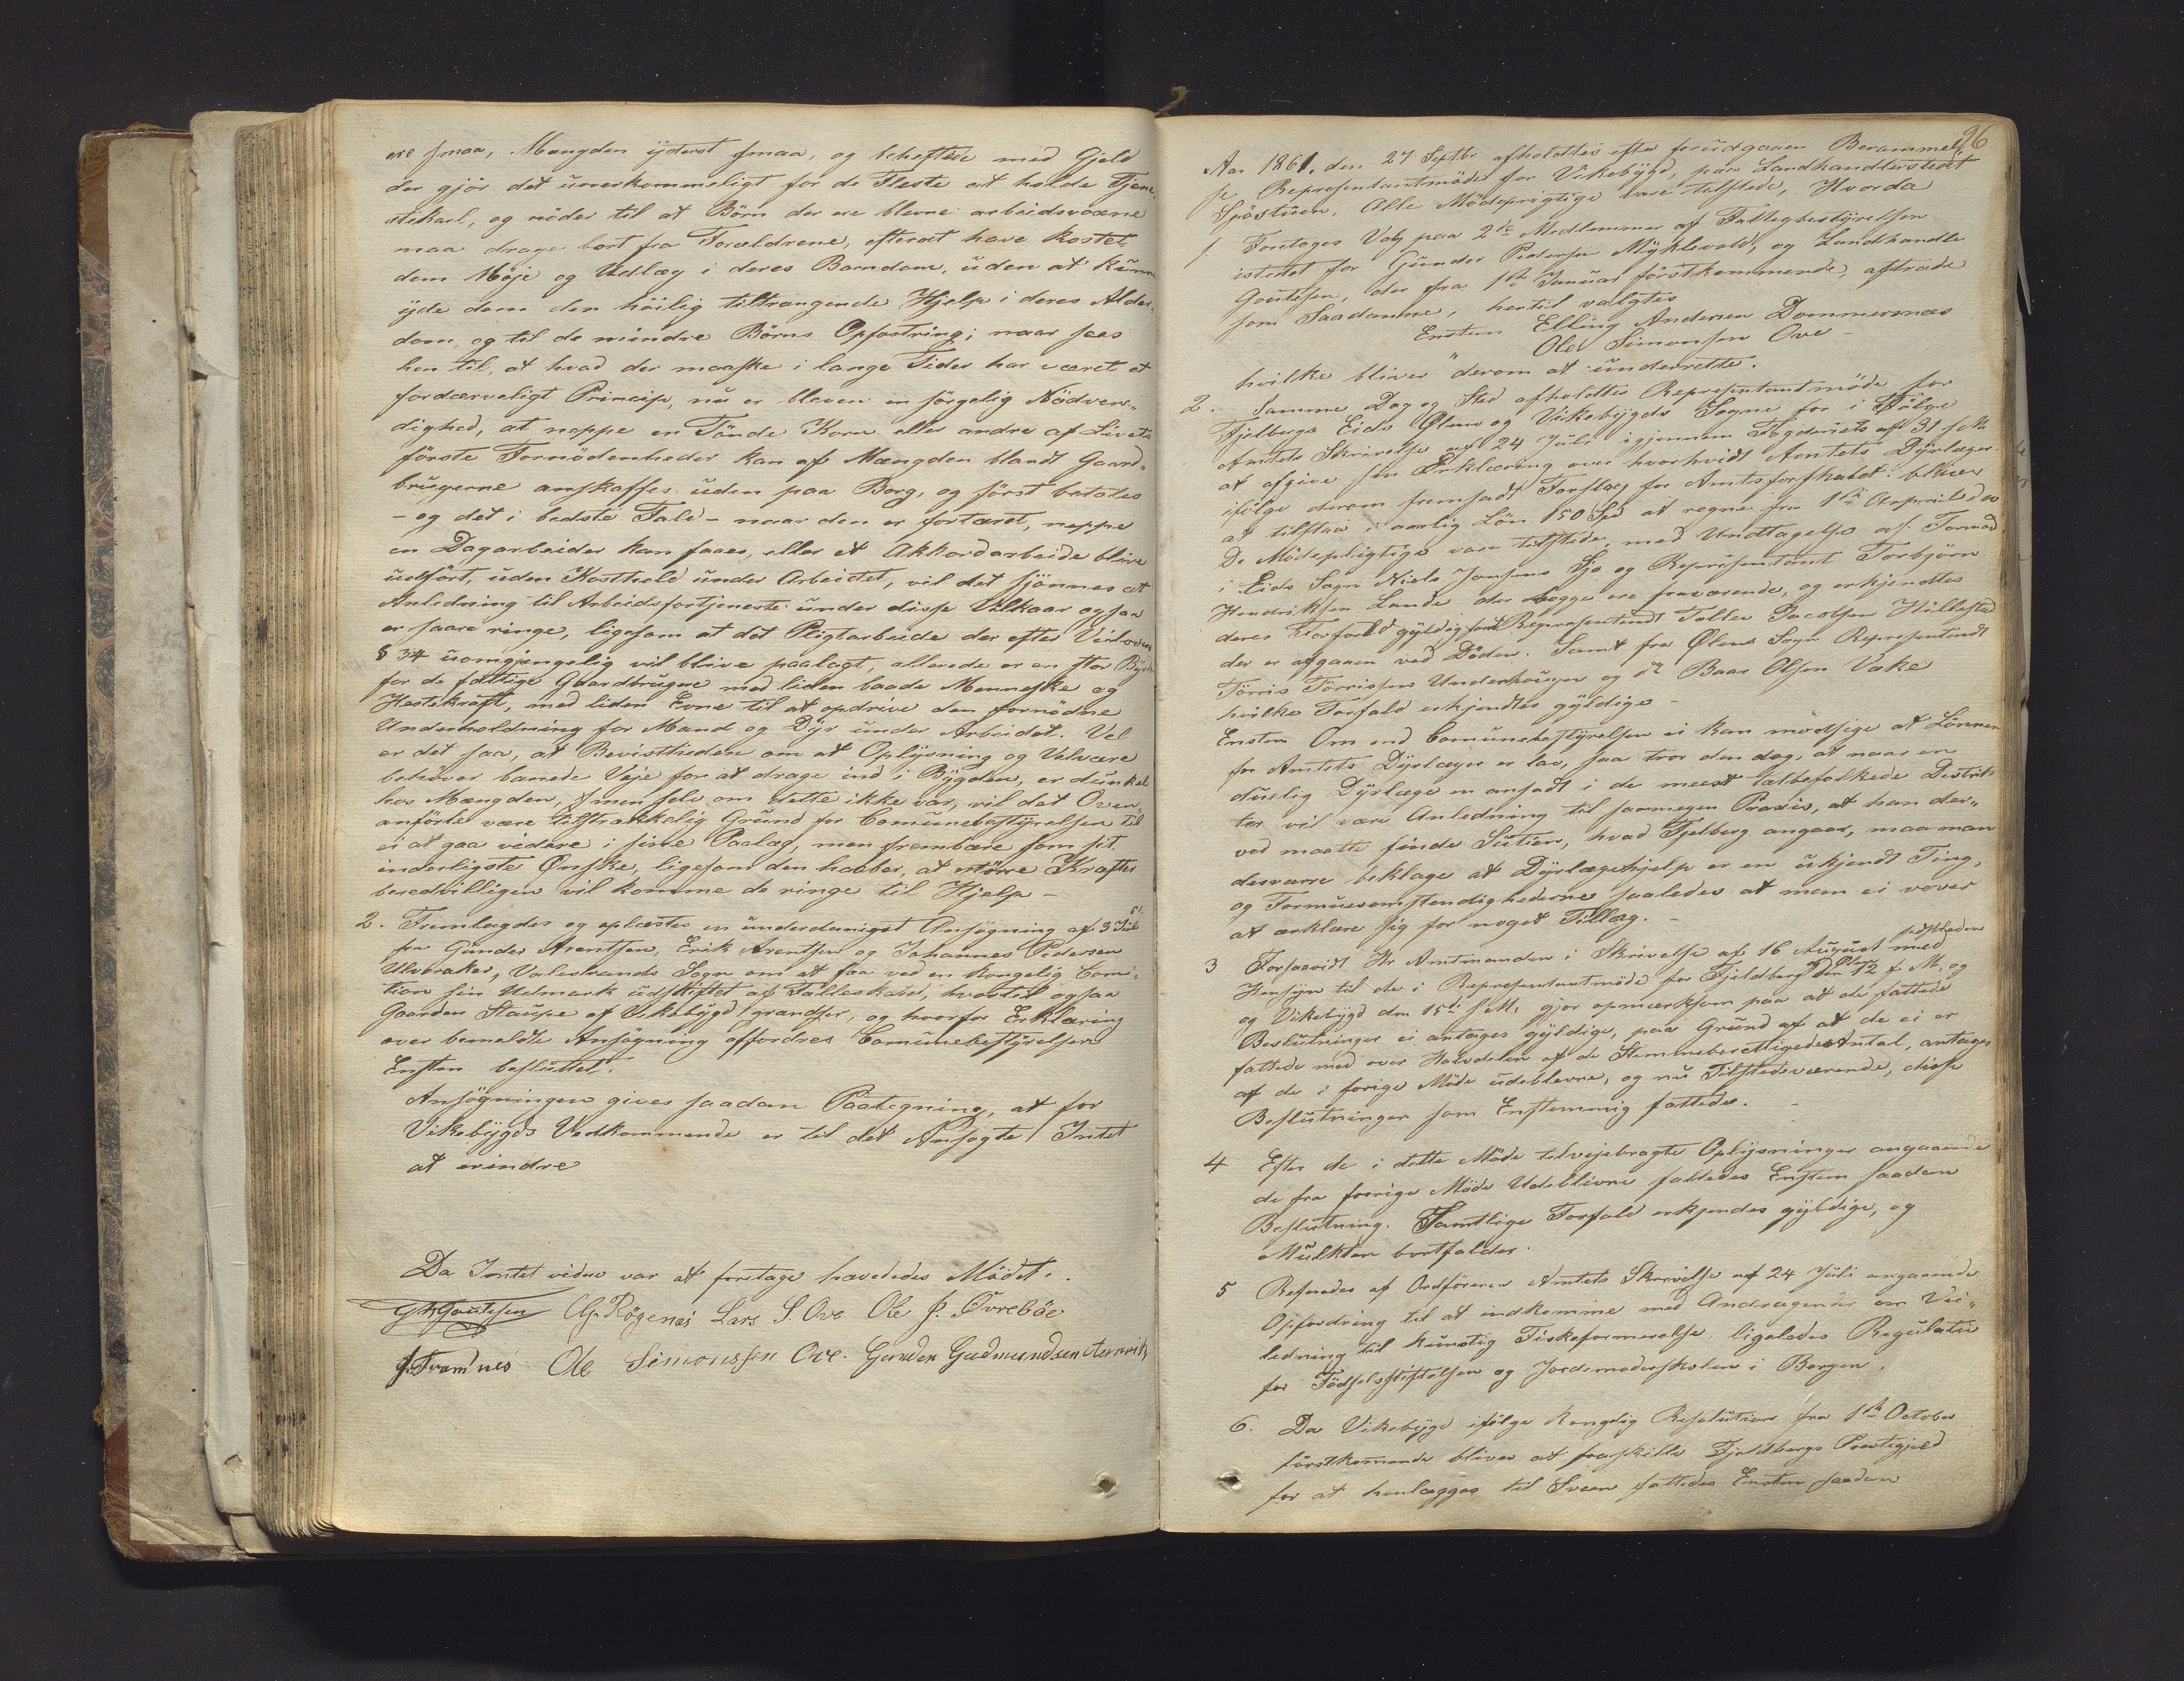 ere smaa, Mængden yderst smaa, og beheftede med Gjeld
der gjör det uoverkommeligt for de Fleste at holde Tjene
stekarl, og nöder til at Börn der ere blevne arbeidsvoxne
maa drage bort fra Forældrene, efterat have kostet
dem Möje og Udlæg i deres Barndom, uden at kunne
yde dem den höilig tiltrængende Hjelp i deres Alder„
dom, og til de mindre Börns Opfostring; naar sees
hen til, at hvad der maaske i lange Tider har været et
fordærveligt Princip, nu er bleven en sörgelig Nödven„
dighed, at neppe en Tönde Korn eller andre af Livets
förste Fornödenheder kan af Mængden blandt Gaard„
brugerne anskaffes uden paa Borg, og först betales
– og det i bedste Fald – naar den er fortæret, neppe
en Dagarbeider kan faaes, eller et Akkordarbeide blive
udfört, uden Kosthold under Arbeidet, vil det skjönnes at
Anledning til Arbeidsfortjeneste under disse Vilkaar ogsaa
er saare ringe, ligesom at det Pligtarbeide der efter Veiloven
§ 34 uomgjengelig vil blive paalagt, allerede er en stor Byrde
for de fattige Gaardbrugere med liden baade Menneske og
Hestekraft, med liden Evne til at opdrive den fornödne
Underholdning for Mand og Dyr under Arbeidet. Vel
er det saa, at Bevistheden om at Oplysning og Velvære
behöver banede Veje for at drage ind i Bygden, er dunkel
hos Mængden, men selv om dette ikke var, vil det Oven
anförte være tilstrækkelig Grund for Comunebestyrelsen til
ei at gaa videre i sine Paalæg, men frembære som sit
inderligste Önske, ligesom den haaber, at större Kræfter
beredvilligen vil komme de ringe til Hjelp –
2. Fremlagdes og oplæstes en underdanigst Ansögning af 3 Juli
fra Gunder Arentsen, Erik Arentsen og Johannes Pedersen
Ulveraker, Valestrands Sogn om at faa ved en kongelig Comi„
tion sin Udmark udskiftet af Fælleskabet, hvortil ogsaa
Gaarden Staupe af Vikebygd grændser, og hvorfor Erklæring
over bemeldte Ansögning affordres Comunebestyrelsen
Ensten besluttet.
Ansögningen gives saadan Paategning, at for
Vikebygds Vedkommende er til det Ansøgte Intet
at erindre
Da Intet videre var at foretage hævededes Mödet.
G A Goutesen G. Rögenæs Lars S. Ove Ole P. Øvreböe
J. Framnes Ole Simonssen Ove. Gunder Gudmundsen
96
Aar 1861, den 27 Septbr afholdtes efter forudgaaen Berammel„
se Representantmöde for Vikebygd, paa Landhandlerstedet
Sjöstuen. Alle Mödepligtige vare tilstede, Hvorda
1. Foretoges Valg paa 2de Medlemmer af Fattigbestyrelsen
istedet for Gunder Pedersen Myklevold, og Landhandler
Goutesen, der fra 1ste Januar förstkommende, aftræde
som Saadanne, hertil valgtes
Ensten Elling Andersen Dommersnæs
Ole Simonsen Ove –
hvilke bliver derom at underrette.
2. Samme Dag og Sted afholdtes Repræsentantmöde for
Fjelbergs Eids Ölens og Vikebygds Sogne for i Fölge
Amtets Skrivelse af 24 Juli igjennem Fogderiets af 31 s.M.
at afgive sin Erklæring over hvorhvidt Amtets Dyrlæger
ifölge derom fremsadt Forslag for Amtsforskabet bliver
at tilstaa i aarlig Lön 150 Spd at regne fra 1ste April d.A.
De Mödepligtige vare tilstede, med Undtagelse af: Formand
i Eids Sogn Niels Jansens Sjo og Representant Torbjörn
Hendriksen Lande der begge ere fraværende, og erkjendtes
deres Forfald gyldig samt Representant Tollev Jacobsen Hillestad
der er afgaaen ved Döden. Samt fra Ølens Sogn Representant
Törris Törrisen Underhougen og do Baar Olsen Vake
hvilke Forfald erkjendtes gyldige –
Ensten Om end Comunebestyrelsen ei kan modsige at Lönnen
for Amtets Dyrlæge er lav, saa tror den dog, at naar en
duelig Dyrlæge en ansadt i de meest tætbefolkede Distrik
ter vil være Anledning til saamegen Praxis, at han der„
ved maatte finde Sutien, hvad Fjelberg angaar, maa man
desværre beklage at Dyrlægehjelp er en ukjendt Ting,
og Formuesomstendighederne saaledes at man ei vover
at erklære sig for noget Tillæg. –
3 Forsaavidt Hr Amtmanden i Skrivelse af 16 August med
Hensyn til de i Representantmöde for Fjeldberg og Ølen den 12 f. M. og
og Vikebygd den 15de s.M. gjör opmærksom paa at de fattede
Beslutninger ei antages gyldige, paa Grund af at de ei er
fattede med over Halvdelen af de Stemmeberettigedes Antal, antages
af de i forige Möde udeblevne, og nu Tilstedeværende, disse
Beslutninger som Enstemmig fattede. –
4 Efter de i dette Möde tilvejebragte Oplysninger angaaende
de fra forrige Möde Udeblivne fattedes Ensten saadan
Beslutning. Samtlige Forfald erkjendes gyldige, og
Mulkten bortfalder.
5 Refereredes af Ordföreren Amtets Skrivelse af 24 Juli angaaende
Opfordring til at indkomme med Andragender om Vei„
ledning til kunstig Fiskeformerelse, ligeledes Regulativ
for Födselsstiftelsen og Jordemoderskolen i Bergen.
6. Da Vikebygd ifölge kongelig Resolution fra 1ste October
förstkommende bliver at fraskille Fjeldbergs Præstegjeld
for at henlægges til Sveen fattedes Ensten saadan